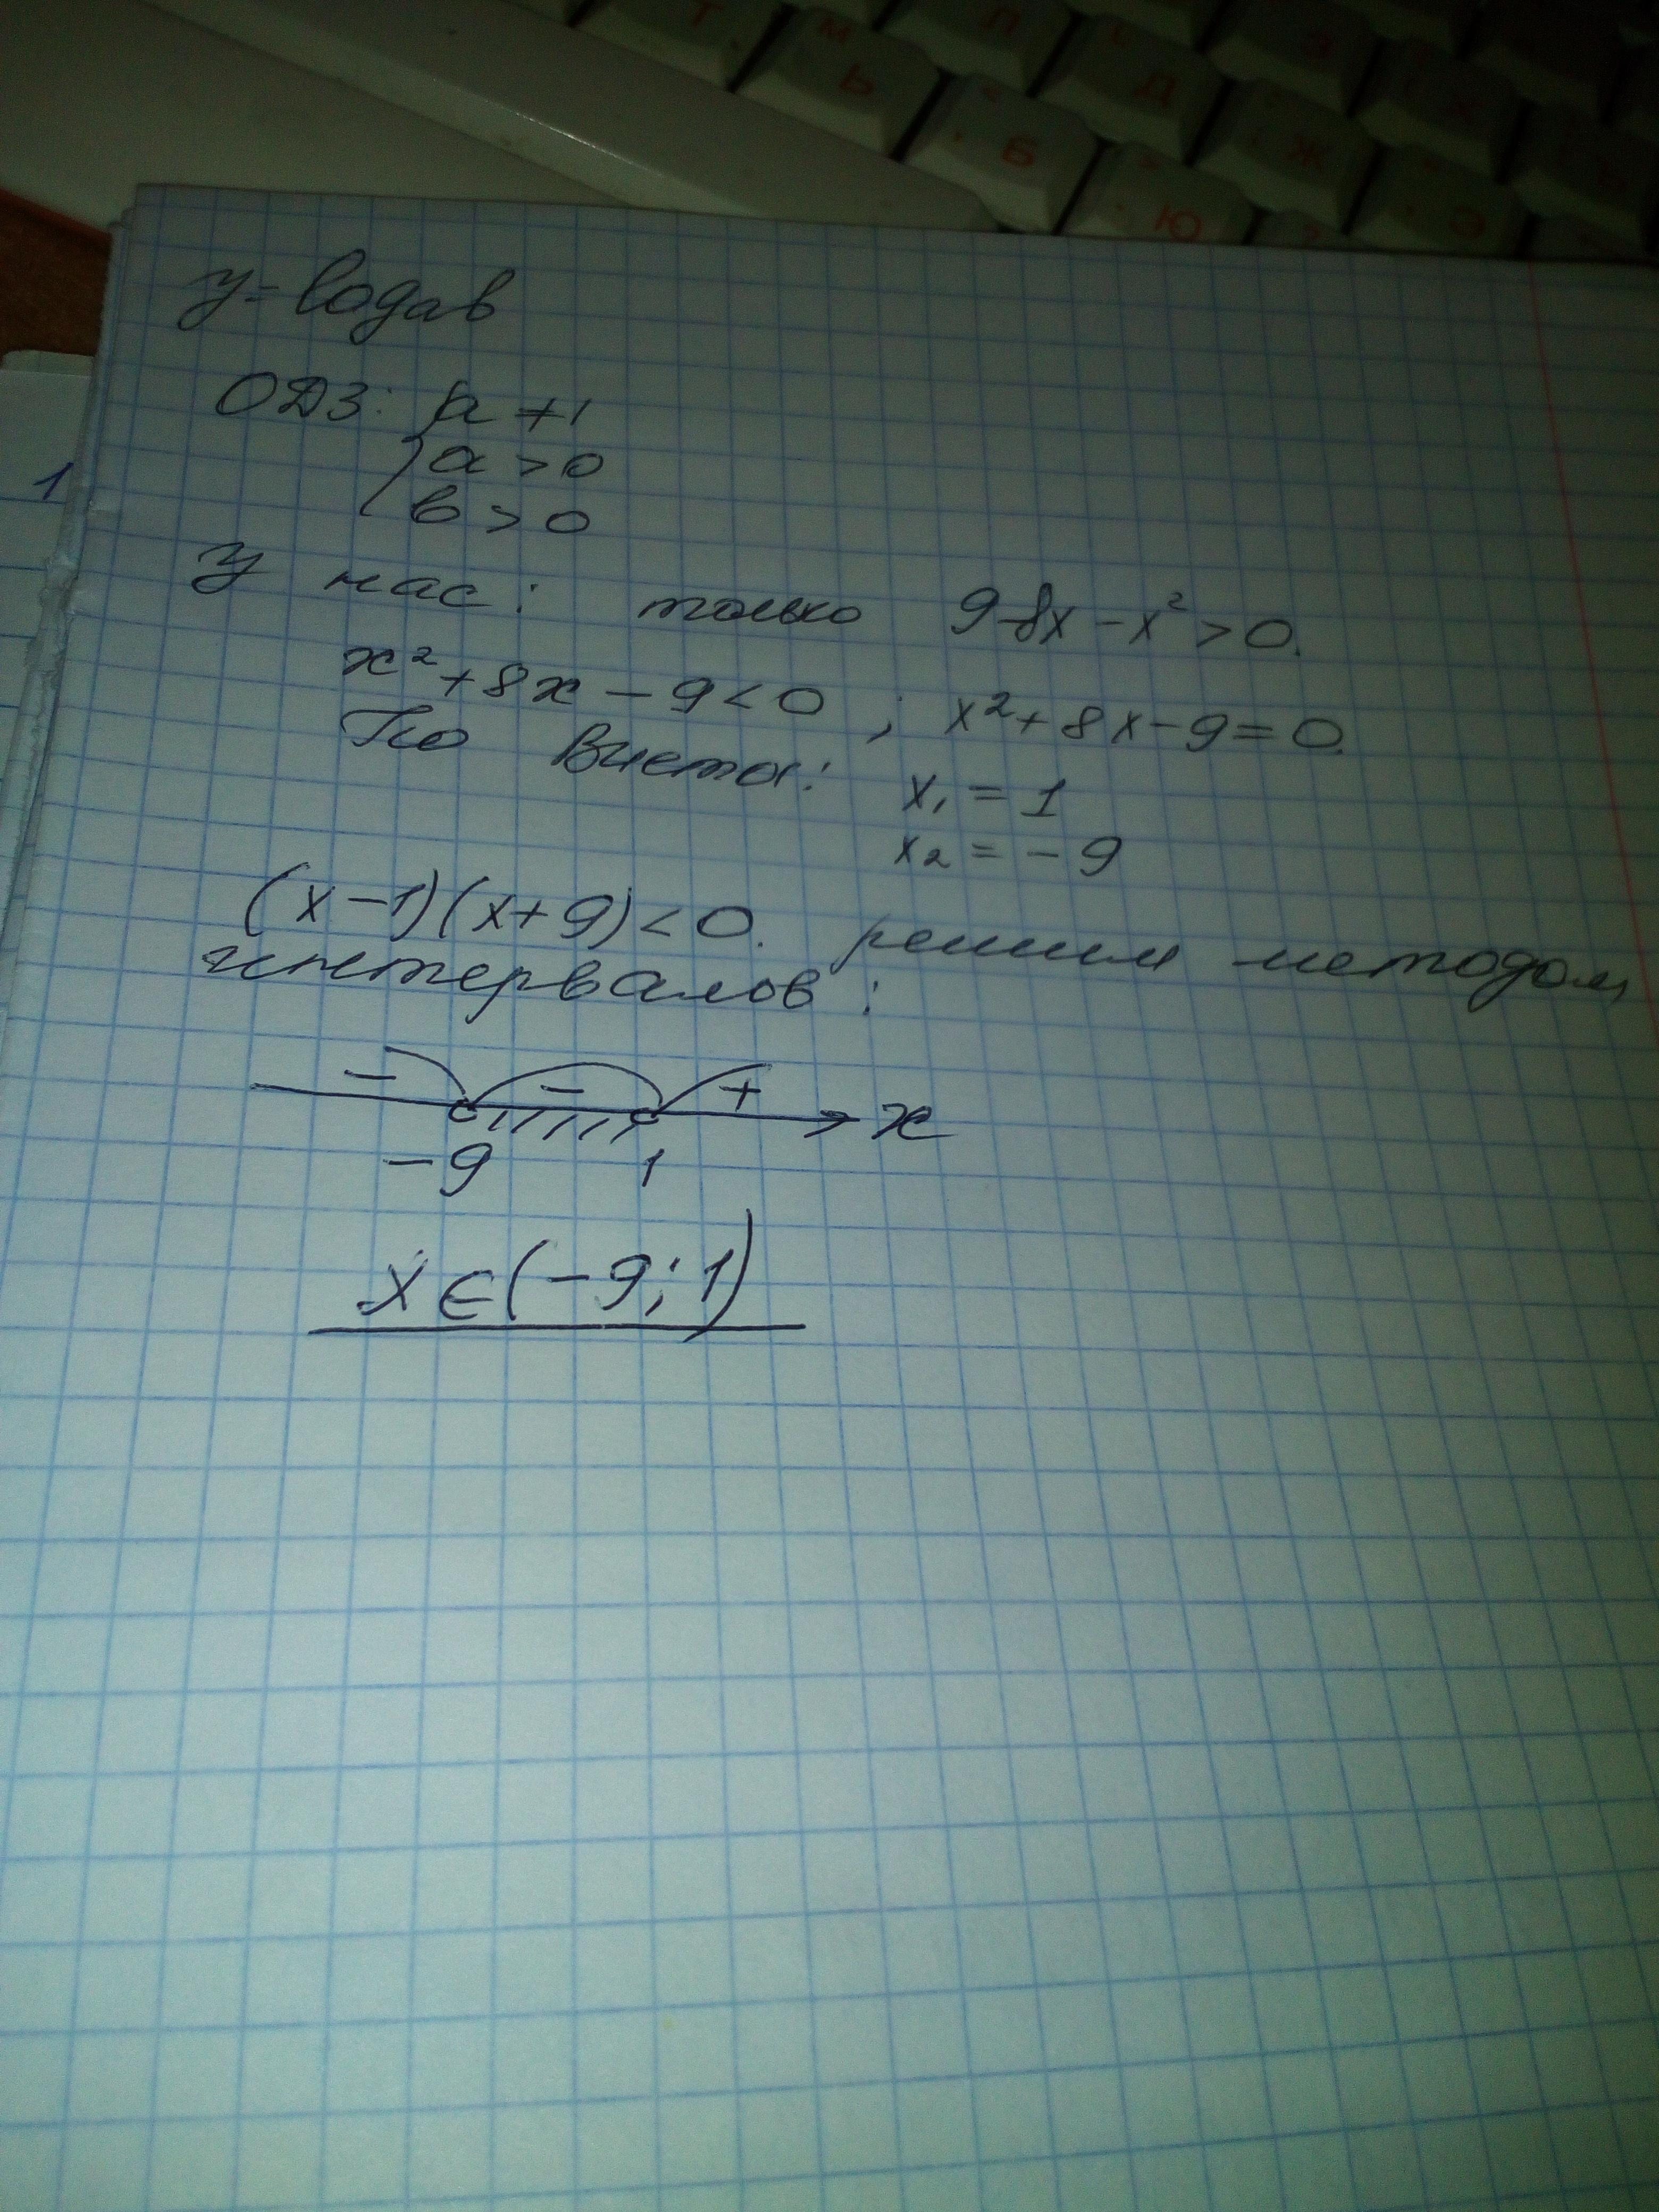 Т Л З
М Ь Д Ж
Б Ю Э
1
y = logaв
ОДЗ: { a ≠ 1
a > 0
в > 0
У нас: только 9-8x-x² > 0.
x² + 8x - 9 < 0 ; x² + 8x - 9 = 0.
По Виета: x₁ = 1
x₂ = -9
(x-1)(x+9) < 0. решим методом
интервалов:
- - + x
-9 1
x ∈ (-9; 1)